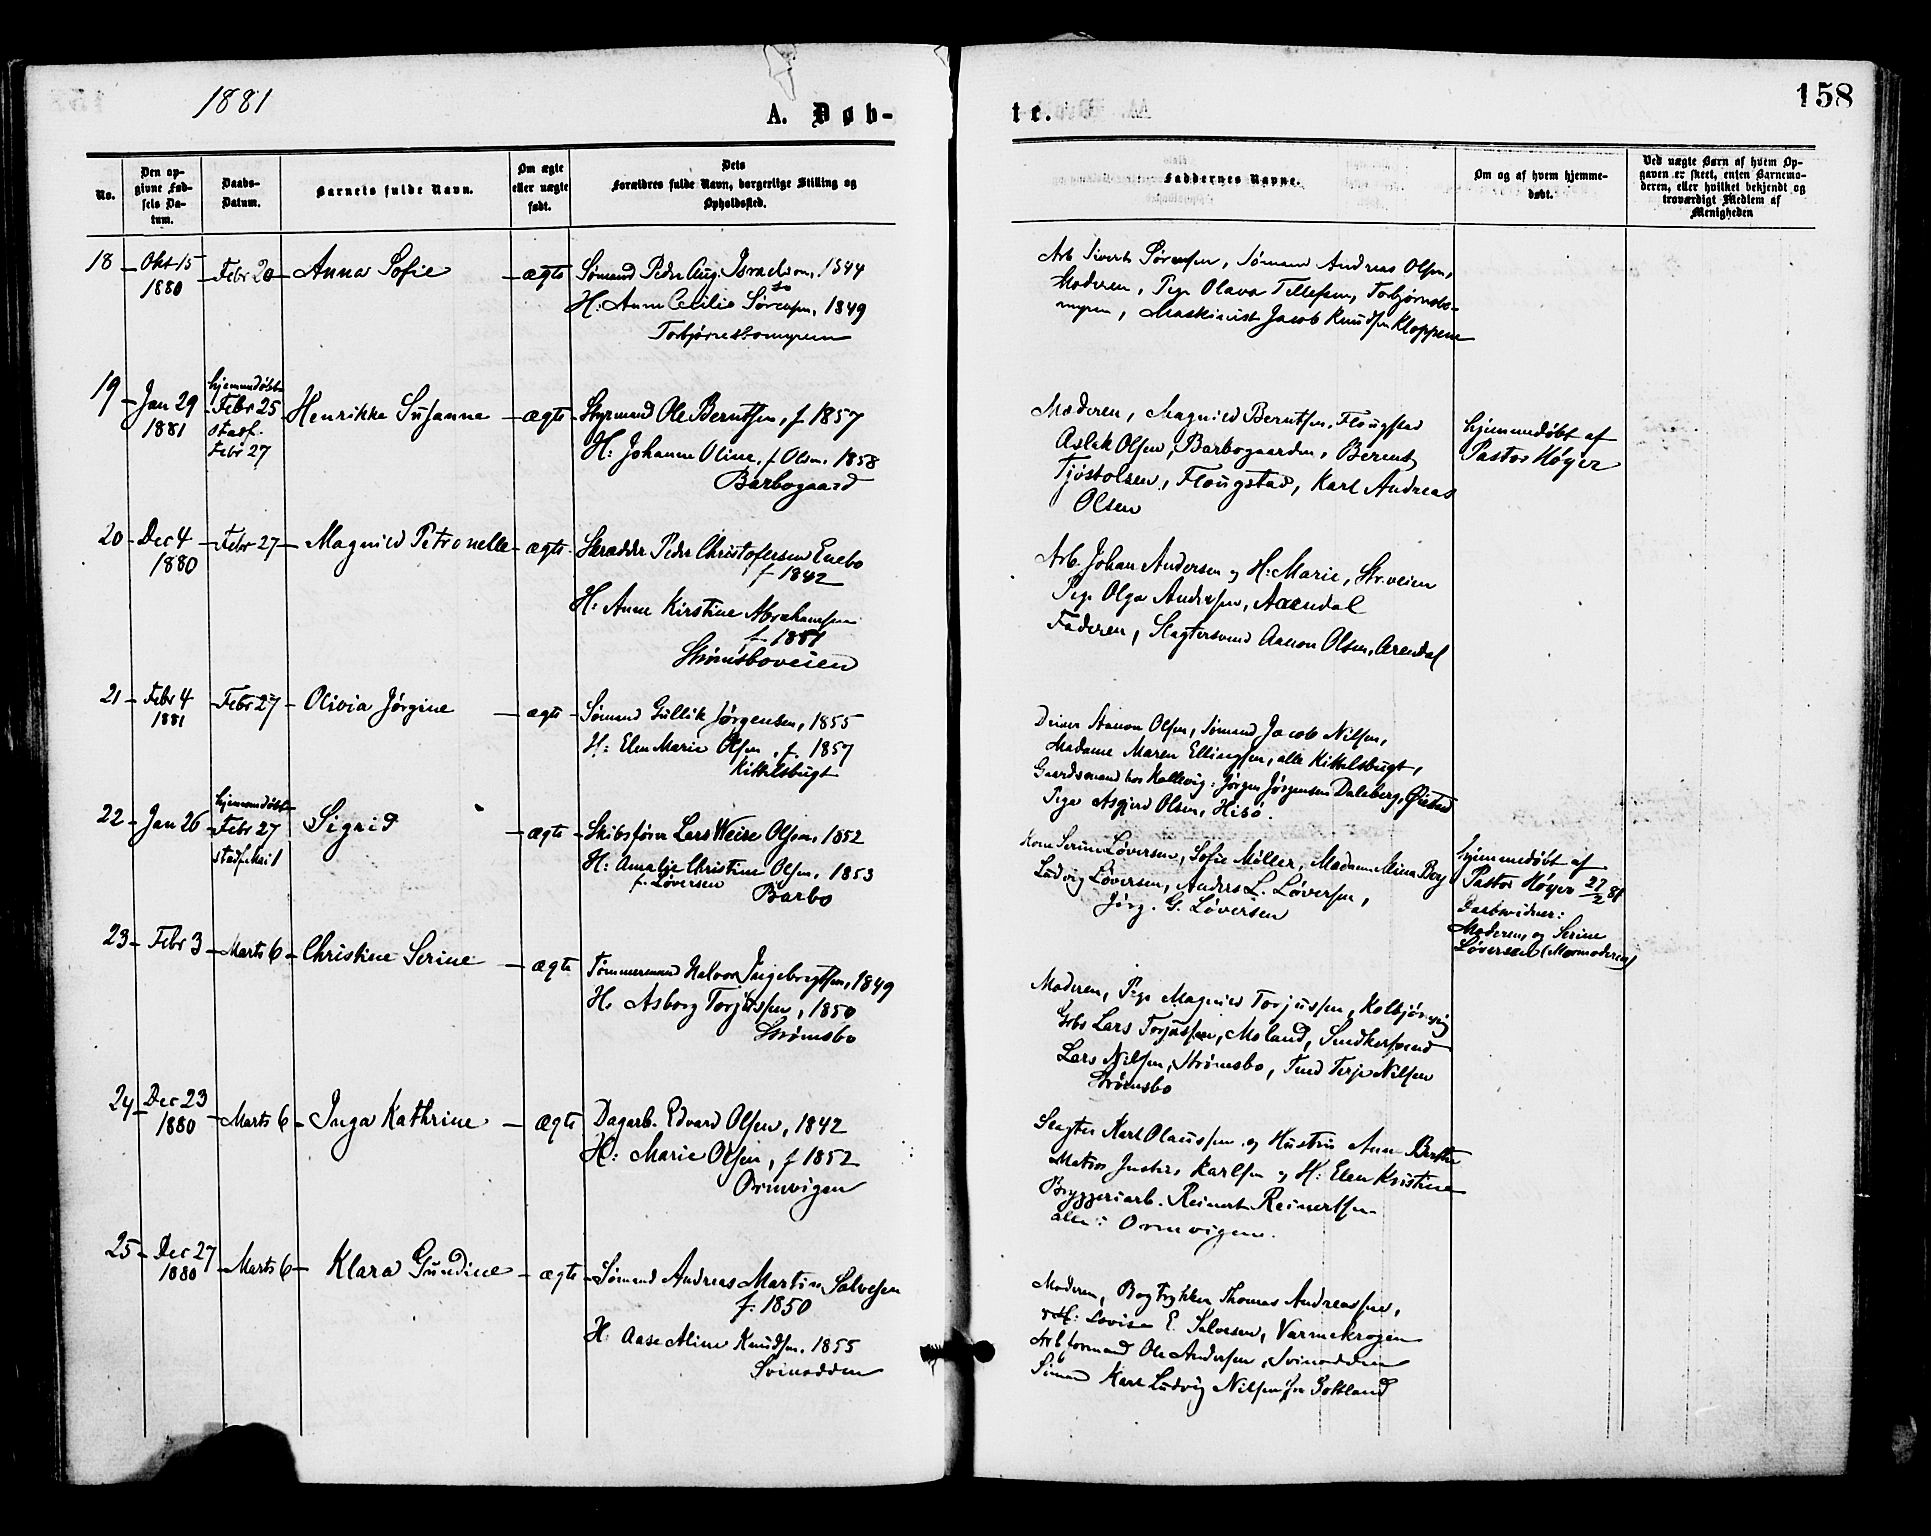 1881
158
A. Døb-
te.
No.
Den op-
givne Fød-
sels Da-
tum.
Daabs-
Datum.
Barnets fulde Navn.
Om ægte
eller uægte
født.
Dets
Forældres fulde Navn, borgerlige Stilling og
Opholdssted.
Faddernes Navne.
Om og af hvem hjemme-
døbt.
Ved uægte Børn af hvem Op-
gaven er skeet, enten Barnemo-
deren, eller hvilket bekjendt og
troværdigt Medlem af
Menigheden
18
Okt 15
1880
Febr 20
Anna Sofie
ægte
Sømand Peder Aug. Israelsen, 1844
H: Anne Cecilie Sørensen, 1849
Torbjørnsbomyren
Arb Sivert Sørensen, Sømand Andreas Olsen,
Moderen, Pige Olava Tellefsen, Torbjørnsbo-
myren, Maskinist Jacob Knudsen Kloppene
19
Jan 29
1881
hjemmedøbt
Febr 25
stadf.
Febr 27
Henrikke Susanne
ægte
Styrmand Ole Berntsen, f 1857
H: Johanne Oline f. Olsen. 1858
Barbogaard
Moderen, Magnild Berntsen, Flougstad
Aslak Olsen, Barbogaarden, Berent
Tjøstolsen, Flougstad, Karl Andreas
Olsen
hjemmedøbt af
Pastor Høyer
20
Dec 4
1880
Febr 27
Magnild Petronelle
ægte
Skrædder Peder Christofersen Enebo
f 1842
H: Anne Kirstine Abrahamsen
f 1851
Strømsboveien
Arb. Johan Andersen og H: Marie, Str.veien
Pige Olga Andersen, Arendal
Faderen, Slagtersvend Aanon Olsen, Arendal
21
Febr 4
1881
Febr 27
Olivia Jørgine
ægte
Sømand Gullik Jørgensen, 1855
H: Elen Marie Olsen, f. 1857
Kittelsbugt
Aanon Olsen, Sømand Jacob Nilsen,
Madame Maren Ellingsen, alle Kittelsbugt,
Gaardsmand hos Kallevig: Jørgen Jørgensen Daleberg, Øiestad
Pige Asgjerd Olsen, Hisø.
22
Jan 26
hjemmedøbt
Febr 27
stadf. Mai 1
Sigrid
ægte
Skibsfører Lars Weise Olsen, 1852
H: Amalie Christine Olsen, 1853
f. Løversen
Barbo
Kone Serine Løversen, Sofie Møller, Madame Mina Boy
Ludvig Løversen, Anders L. Løversen,
Jørg. G. Løversen
hjemmedøbt af
Pastor Høyer 27/2 81
Daabsvidner:
Moderen, og Serine
Løversen (Mormoderen)
23
Febr 3
Marts 6
Christine Serine
ægte
Tømmermand Halvor Ingebregtsen, 1849
H: Asborg Torjussen, 1850
Strømsbo
Moderen, Pige Magnild Torjussen, Kolbjørnsvig
Gbr Lars Torjussen, Moland, Snedkersvend
Lars Nilsen, Strømsbo, Terje Nilsen
Strømsbo
24
Dec 23
1880
Marts 6
Inga Kathrine
ægte
Dagarb. Edvard Olsen, 1842
H: Marie Olsen, f 1852
Ormvigen
Slagter Karl Olaussen og Hustru Anne Berthe
Matros Karlsen og H: Elen Kristine
Bryggeriarb. Reinert Reinertsen
alle: Ormvigen.
25
Dec 27
1880
Marts 6
Klara Gundine
ægte
Sømand Andreas Martin Salvesen
f. 1850
H: Aase Aline Knudsen. 1855
Svinodden
Moderen, Bogtrykker Thomas Andreassen,
& H: Lovise E. Salvesen, Varmekrogen
Arbformand Ole Andersen, Svinodden
Sømand Karl Ludvig Nilsen fra Gotland